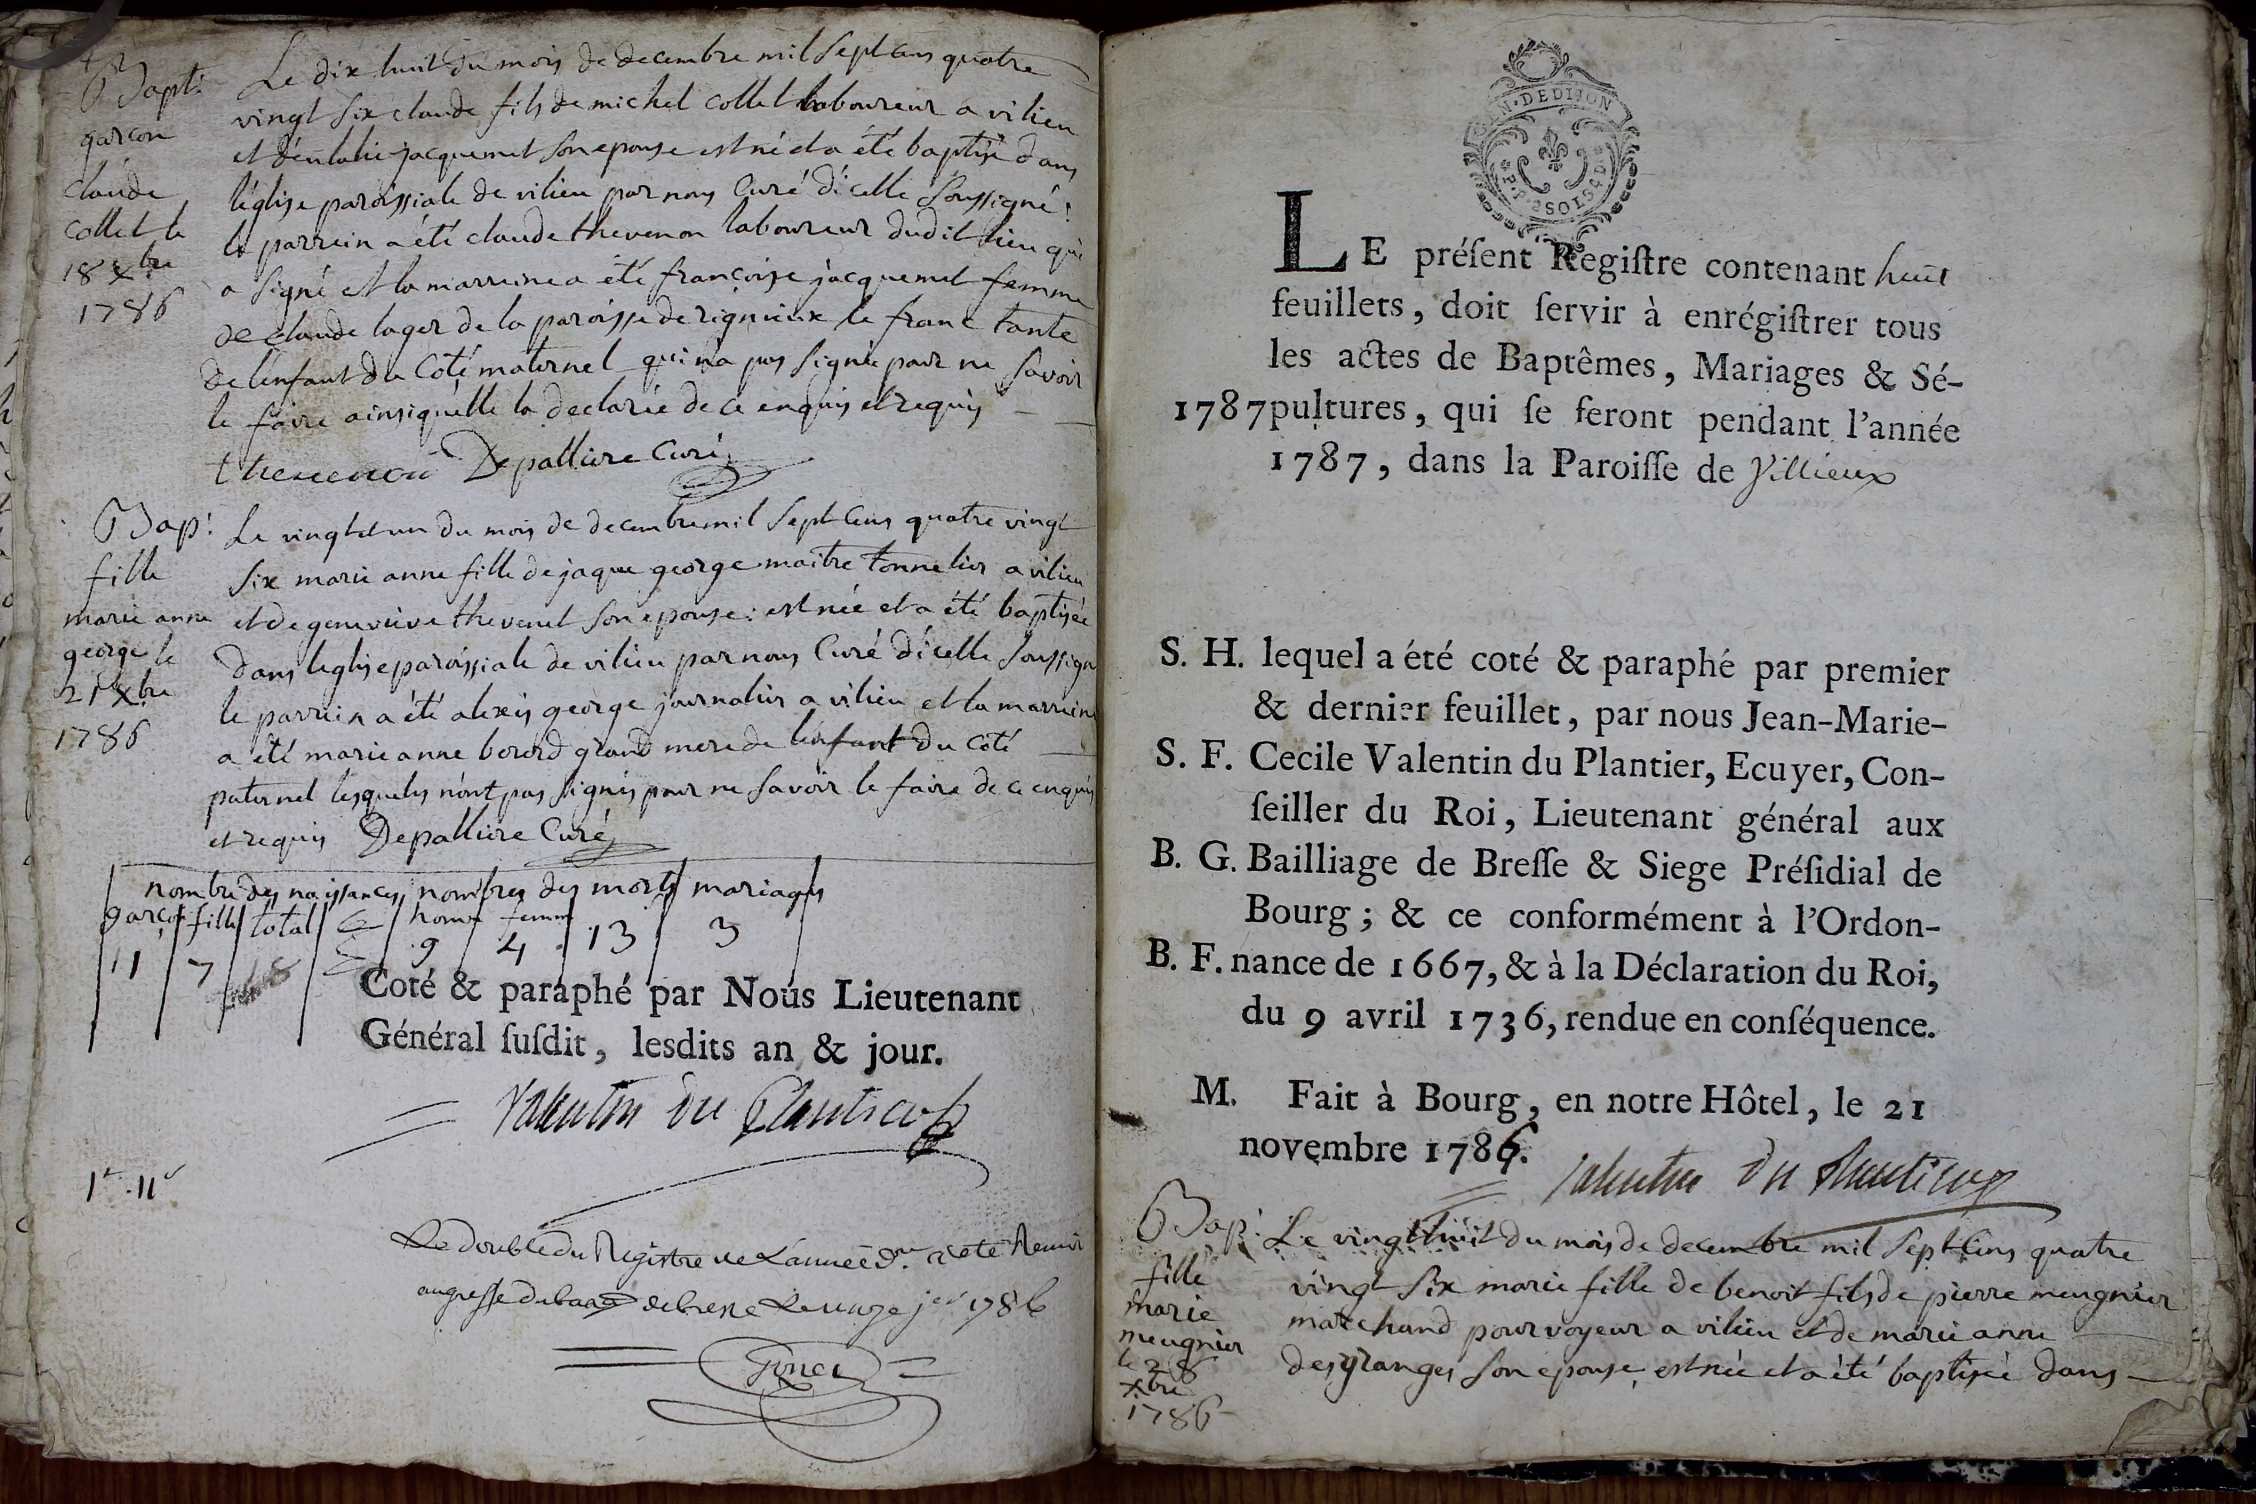 Bapt:
garcon
claude
collet le
18 xbre
1786
Le dix huit du mois de decembre mil sept cens quatre
vingt six claude fils de michel collet laboureur a vilieu
et d'eulalie jacquemet son epouse est né et a été baptisé dans
l'église paroissiale de vilieu par nous Curé d'icelle soussigné:
le parrein a été claude thevenon laboureur dudit lieu qui
a signé et la marreine a été françoise jacquemet femme
de claude lager de la paroisse de rignieux le franc tante
de l'enfant du Coté maternel qui n'a pas signée pour ne savoir
le faire ainsi qu'elle la declarée de ce enquis et requis
thevenon Depalliere Curé
Bap:
fille
marie anne
george le
21 xbre
1786
Le vingt et un du mois de decembre mil sept cens quatre vingt
six marie anne fille de jaque george maitre tonnelier a vilieu
et de genevieve thevenet son epouse: est née et a été baptisée
dans leglise paroissiale de vilieu par nous Curé d'icelle soussigné
le parrein a été alexis george journalier a vilieu et la marreine
a été marie anne borord grand mere de l'enfant du coté
paternel lesquels n'ont pas signés pour ne savoir le faire de ce enquis
et requis Depalliere Curé
nombre des naissances nombres des morts mariages
garçon fille total homme femme
11 7 18 9 4 13 3
Coté & paraphé par Nous Lieutenant
Général ſuſdit, lesdits an & jour.
Valentin du Plantier
Le double du Registre de L'année d. a été Remis
au greffe du baage de bresse Le onze jer 1786
LE préſent Regiſtre contenant huit
feuillets, doit ſervir à enrégiſtrer tous
les actes de Baptêmes, Mariages & Sé-
1787 pultures, qui ſe feront pendant l'année
1787, dans la Paroiſſe de Villieux
S. H. lequel a été coté & paraphé par premier
& dernier feuillet, par nous Jean-Marie-
S. F. Cecile Valentin du Plantier, Ecuyer, Con-
ſeiller du Roi, Lieutenant général aux
B. G. Bailliage de Breſſe & Siege Préſidial de
Bourg; & ce conformément à l'Ordon-
B. F. nance de 1667, & à la Déclaration du Roi,
du 9 avril 1736, rendue en conſéquence.
M. Fait à Bourg, en notre Hôtel, le 21
novembre 1786.
Valentin du Plantier
Bap:
fille
marie
meugnier
le 28
xbre
1786
Le vingt huit du mois de decembre mil sept Cens quatre
vingt six marie fille de benoit fils de pierre meugnier
marchand pourvoyeur a vilieu et de marie anne
desgranges son epouse est née et a été baptisée dans